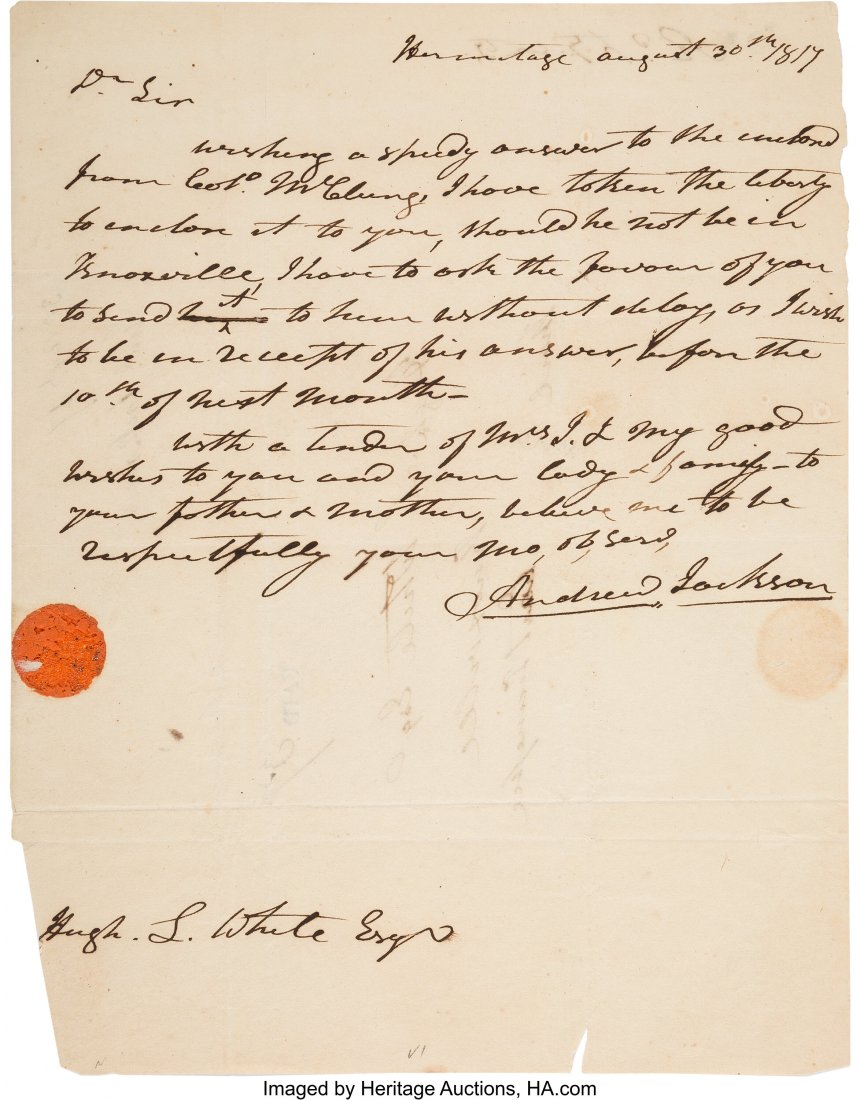 Hermitage august 30.th 1817
Dr Sir
wishing a speedy answer to the enclosd
from Colo. McClung, I have taken the liberty
to enclose it to you, should he not be in
Knoxville, I have to ask the favour of you
to send it to him without delay, as I wish
to be in receipt of his answer, before the
10th of next month—
with a tender of Mrs J. & my good
wishes to you and your lady & family—to
your father & mother, believe me to be
respectfully your mo, ob, serv,
Andrew Jackson
Hugh. L. White Esqr
VI
Imaged by Heritage Auctions, HA.com